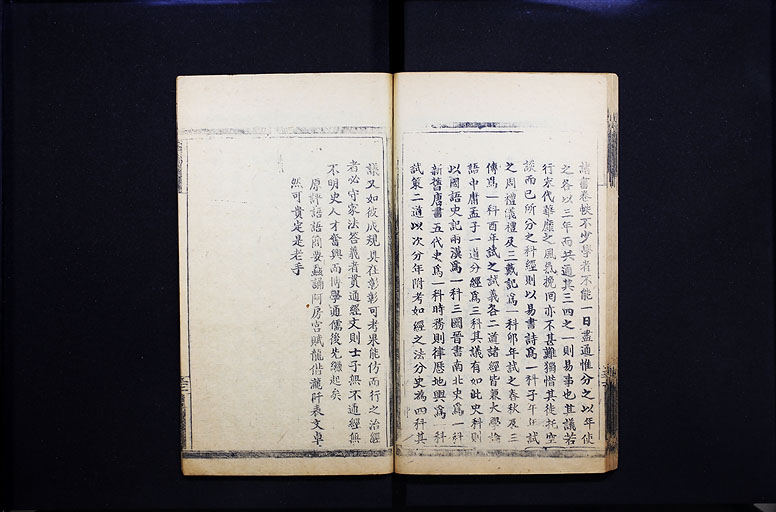 諸書卷帙不少學者不能一日盡通惟分之以年使
之各以三年而共通其三四之一則易事也其議若
行宋代華靡之風氣挽回亦不甚難獨惜其徒托空
談而已所分之科經則以易書詩爲一科子午年試
之周禮儀禮及三戴記爲一科卯年試之春秋及三
傳爲一科酉年試之試義各二道諸經皆兼大學論
語中庸孟子一道分經爲三科其議有如此史科則
以國語史記兩漢爲一科三國晉書南北史爲一科
新舊唐書五代史爲一科時務則律歷地輿爲一科
試策二道以次分年附考如經之法分史爲四科其
議又如彼成規具在彰彰可考果能仿而行之治經
者必守家法答義者貫通經文則士子無不通經無
不明史人才奮興而博學通儒後先繼起矣
原評語語簡要誦阿房宮賦龍偕瀧阡表文卓
然可貴定是老手